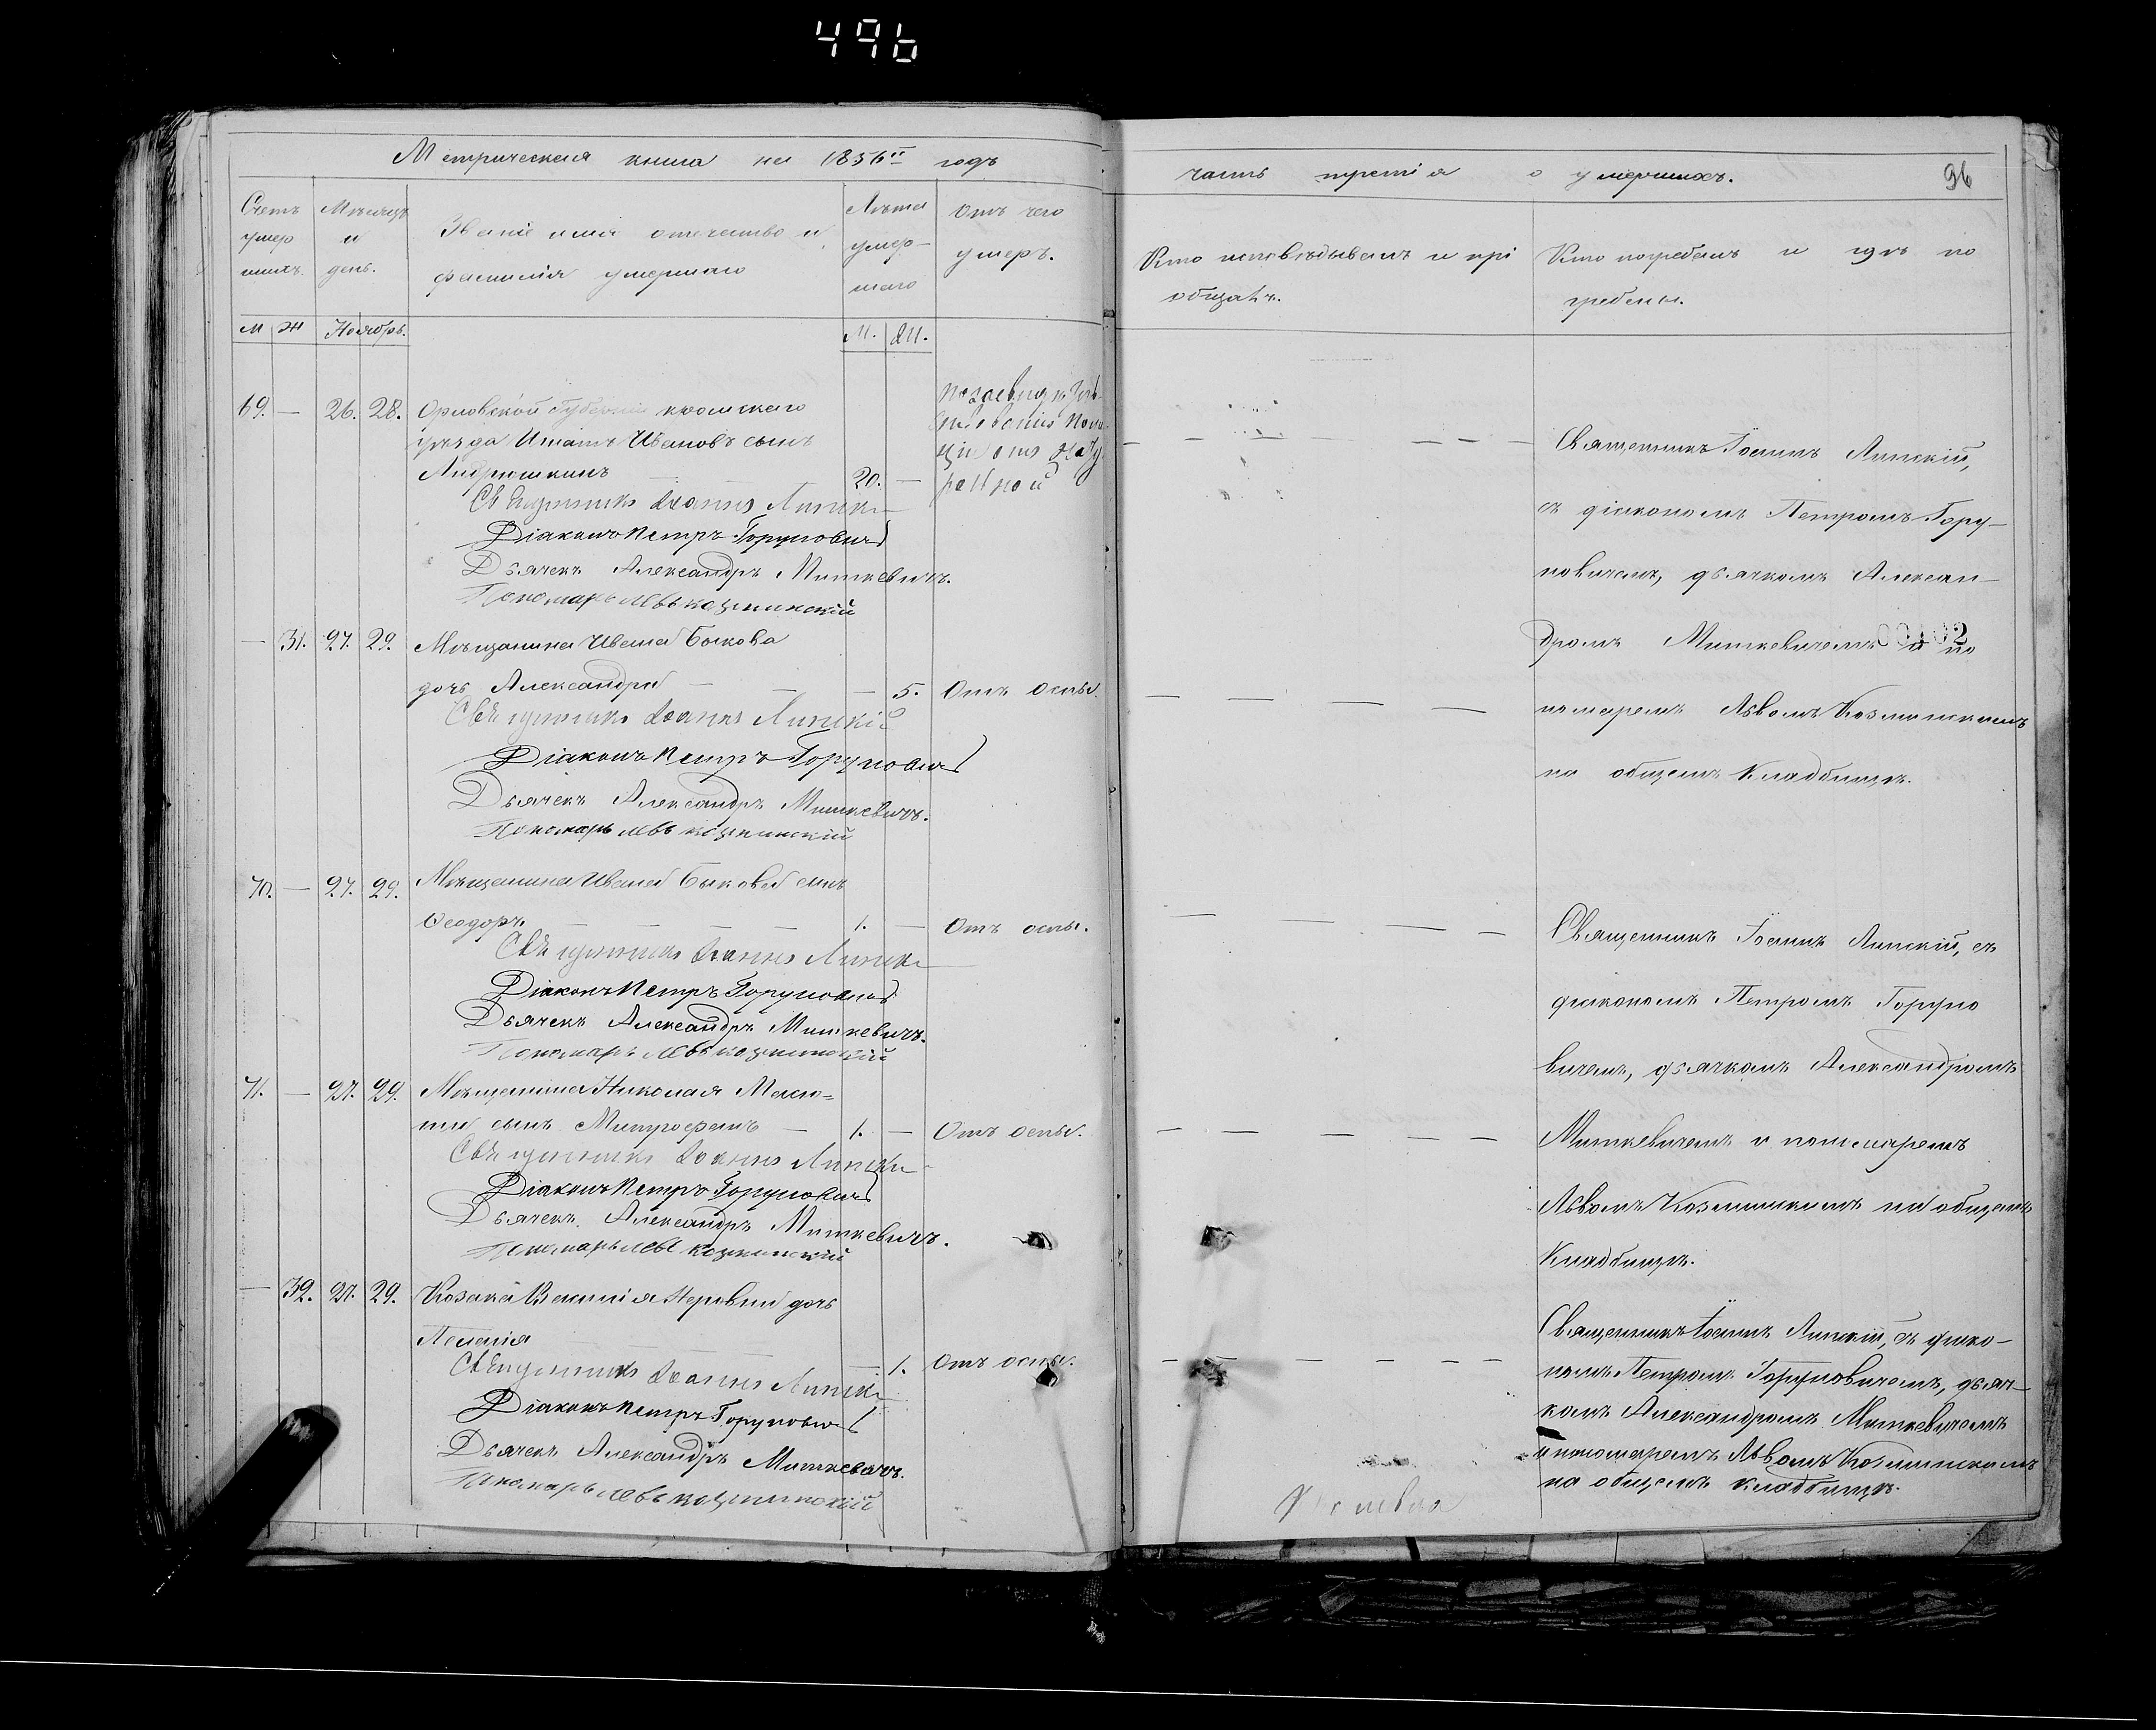 496
Метрическая книга на 1856й годъ
Счетъ умер шихъ.
Мѣсяцъ и день.
Званіе имя отечество и фамилія умершаго
Лѣта умер- шаго
Отъ чего умеръ.
М Ж Ноябрь. М. Ж.
69. — 26. 28. Орловской Губерніи кромскаго
уѣзда Иванъ Ивановъ сынъ
Андрюшкинъ — 20. —
Священникъ Іоаннъ Липскі
Діаконъ Петръ Горуновичъ
Дьячекъ Александръ Миткевичъ.
Пономарь Левъ Козминскій
— 31. 27. 29. Мѣщанина Ивана Быкова
дочь Александра — — — 5. Отъ оспы.
Священникъ Іоаннъ Липскій
Діаконъ Петръ Горуновичъ
Дьячекъ Александръ Миткевичъ.
Пономарь Левъ Козминскій
70. — 27. 29. Мѣщанина Ивана Быкова сынъ
Ѳеодоръ — — — 1. — Отъ оспы.
Священникъ Іоаннъ Липскі
Діаконъ Петръ Горуновичъ
Дьячекъ Александръ Миткевичъ.
Пономарь Левъ Козминскій
71. — 27. 29. Мѣщанина Николая
сынъ Митрофанъ — 1. — Отъ оспы.
Священникъ Іоаннъ Липскі
Діаконъ Петръ Горуновичъ
Дьячекъ Александръ Миткевичъ.
Пономарь Левъ Козминскій
— 32. 27. 29. Козака Василія дочь
Пелагія — 1. Отъ оспы.
Священникъ Іоаннъ Липскі
Діаконъ Петръ Горуновичъ
Дьячекъ Александръ Миткевичъ.
Пономарь Левъ Козминскій
часть третія о умершихъ. 96
Кто исповѣдывалъ и прі
общалъ.
Кто погребалъ и гдѣ по
гребены.
Священникъ Іоаннъ Липскій,
съ діакономъ Петромъ Гору-
новичемъ, дьячкомъ Алексан-
дромъ Миткевичемъ и по
00402
номаремъ Львомъ Козминскимъ
на общемъ Кладбищѣ.
Священникъ Іоаннъ Липскій, съ
діакономъ Петромъ Горуно
вичемъ, дьячкомъ Александромъ
Миткевичемъ и пономаремъ
Львомъ Козминскимъ на общемъ
Кладбищѣ.
Священникъ Іоаннъ Липскій, съ діако-
номъ Петромъ Горуновичемъ, дьяч-
комъ Александромъ Миткевичемъ
и пономаремъ Львомъ Козминскимъ
на общемъ кладбищѣ.